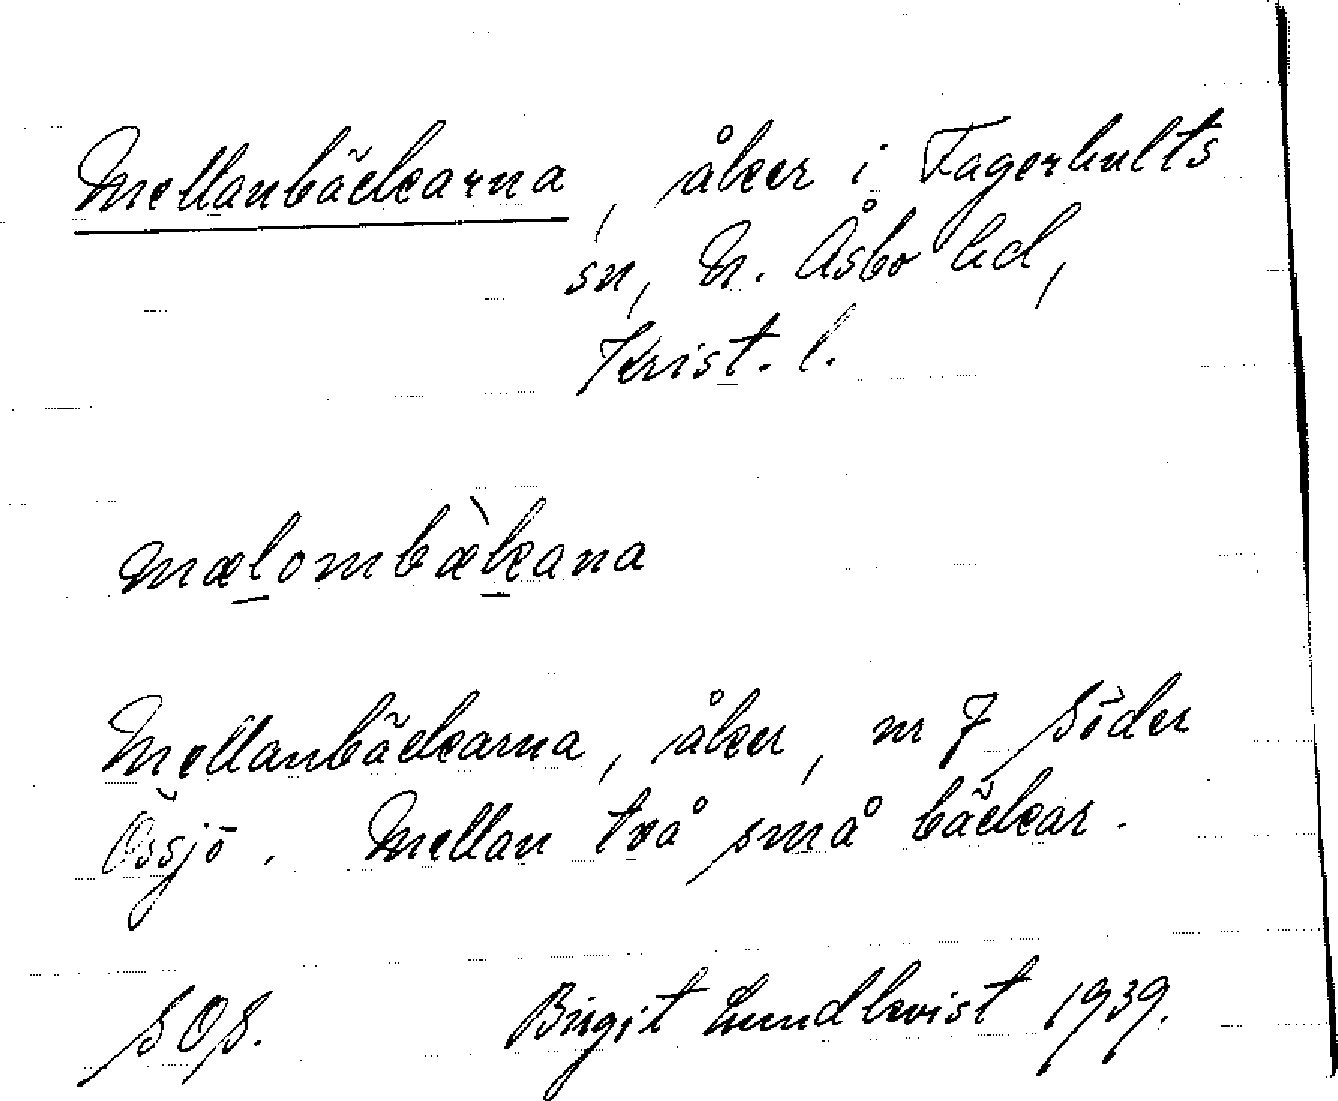 Mellanbäckarna, åker i Fagerhults
sn, N. Åsbo hd,
Krist. l.
mælombæ̀kana
Mellanbäckarna, åker, nr 7 Söder
Össjö. Mellan två små bäckar.
SOS. Birgit Lundkvist 1939.